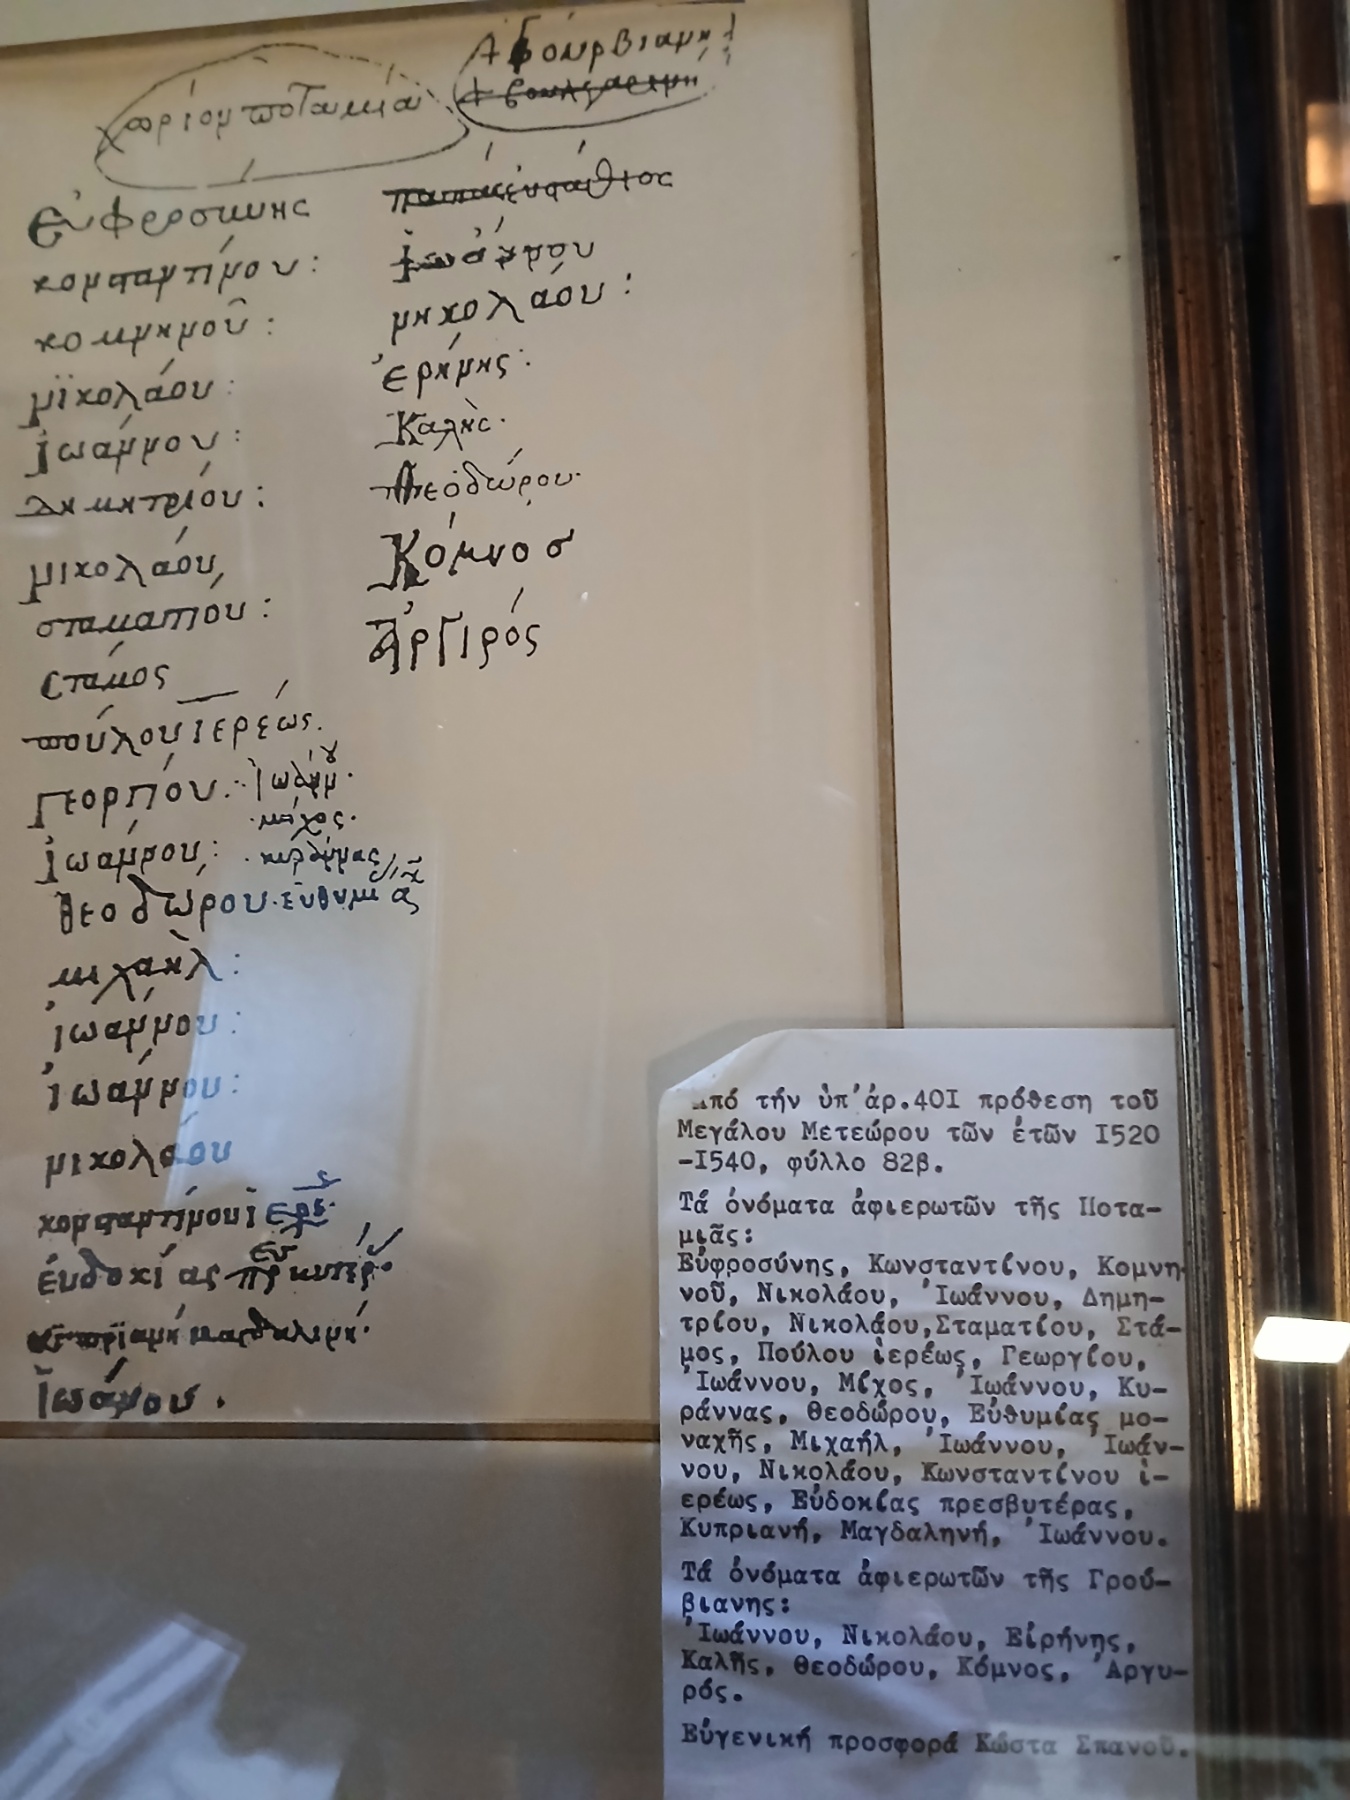 χωρίον ποταμιά
Ἀβούρβιαμη
εὐφροσύνης
κονσταντίνου:
κομνηνοῦ:
νϊκολάου:
ἰωάννου:
δημητρίου:
νικολάου,
σταματίου:
στάμος
πούλου ἱερέως.
γεοργίου. ἰωάνν.
μίχος.
ἰωάννου: κηράννας
θεοδώρου. εὐθυμίας
μιχαὴλ:
ἰωάννου:
ἰωάννου:
νικολάου
κονσταντίνου ἱερέ.
ἐυδοκίας
ἰωάνου.
ἰωάννου
νηκολάου:
ἐρήνης:
Καλὴς.
Θεοδώρου.
Κόμνοσ
ἀργιρός
ἀπό τήν ὑπ'ἀρ.40I πρόθεση τοῦ
Μεγάλου Μετεώρου τῶν ἐτῶν I520
-I540, φύλλο 82β.
Τά ὀνόματα ἀφιερωτῶν τῆς Ποτα-
μιᾶς:
Εὐφροσύνης, Κωνσταντίνου, Κομνη-
νοῦ, Νικολάου, 'Ιωάννου, Δημη-
τρίου, Νικολάου,Σταματίου, Στά-
μος, Πούλου ἱερέως, Γεωργίου,
'Ιωάννου, Μίχος, 'Ιωάννου, Κυ-
ράννας, Θεοδώρου, Εὐθυμίας μο-
ναχῆς, Μιχαήλ, 'Ιωάννου, 'Ιωάν-
νου, Νικολάου, Κωνσταντίνου ἱ-
ερέως, Εὐδοκίας πρεσβυτέρας,
Κυπριανή, Μαγδαληνή, 'Ιωάννου.
Τά ὀνόματα ἀφιερωτῶν τῆς Γρού-
βιανης:
'Ιωάννου, Νικολάου, Εἰρήνης,
Καλῆς, Θεοδώρου, Κόμνος, 'Αργυ-
ρός.
Εὐγενική προσφορά Κώστα Σπανοῦ.